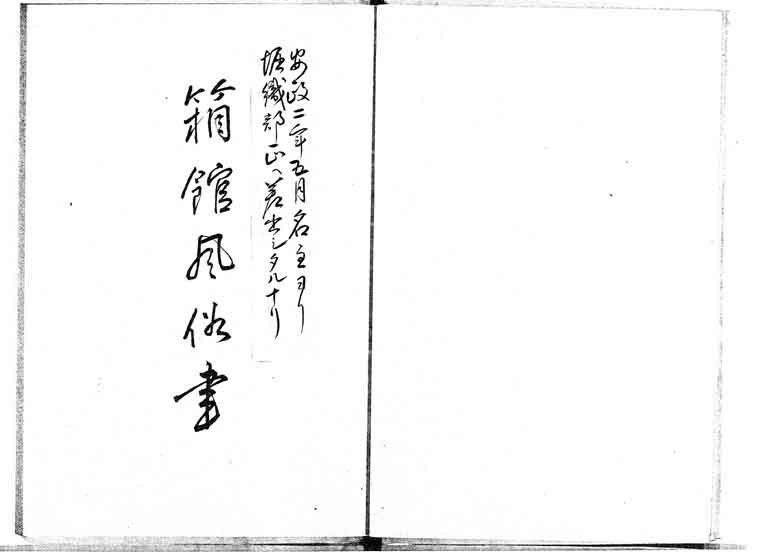 安政二年五月名主ヨリ
堀織部正へ差出シタルナリ
箱館風俗書